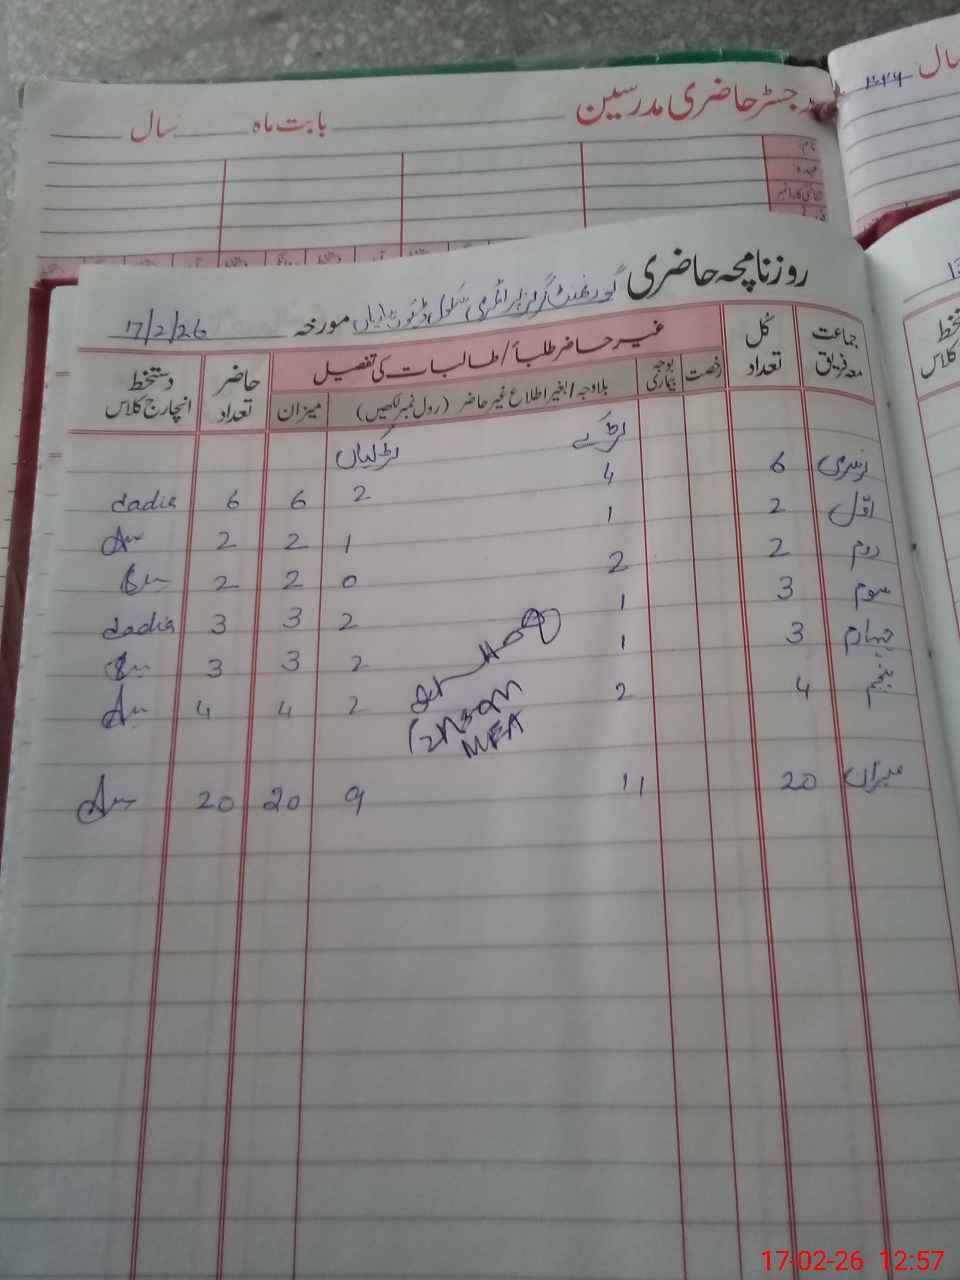 رجسٹر حاضری مدرسین بابت ماہ سال
سال
نام
عہدہ
شناختی کارڈ نمبر
روزنامچہ حاضری گورنمنٹ گرلز پرائمری سکول مورخہ 17/2/26
جماعت معہ فریق کل تعداد غیر حاضر طلبأ / طالبات کی تفصیل حاضر تعداد دستخط انچارج کلاس
رخصت بوجہ بیماری بلاوجہ / بغیر اطلاع غیر حاضر (رول نمبر لکھیں) میزان
لڑکے لڑکیاں
نرسری 6 4 2 6 6 dadia
اول 2 1 1 2 2
دوم 2 2 0 2 2
سوم 3 1 2 3 3 dadia
چہارم 3 1 2 3 3
پنجم 4 2 2 4 4
MEA
میزان 20 11 9 20 20
17-02-26 12:57